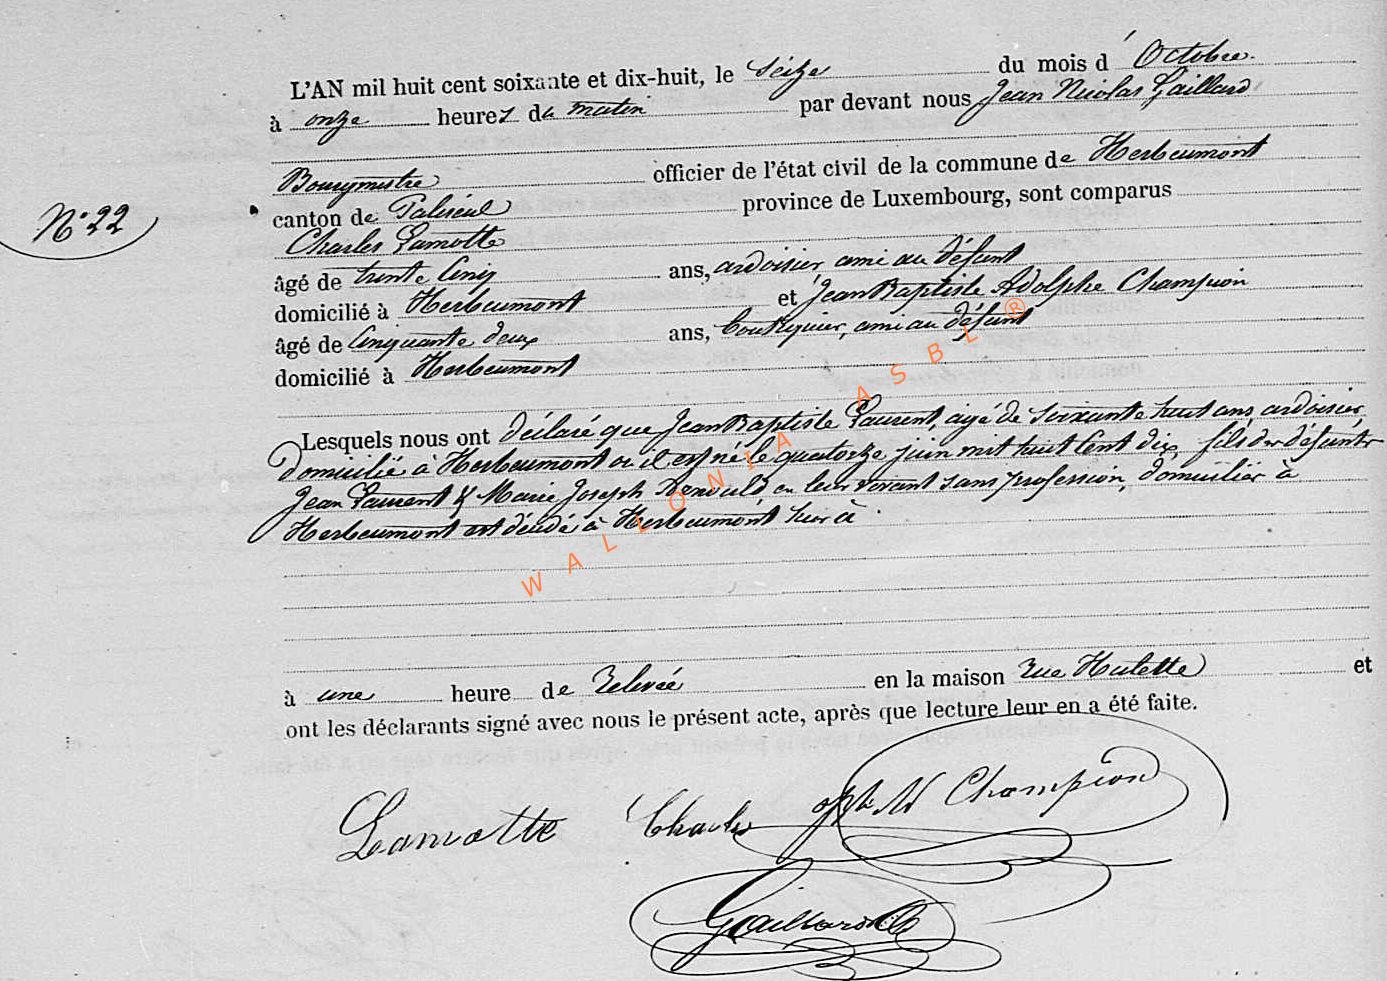 L'AN mil huit cent soixante et dix-huit, le Seize du mois d'Octobre
à onze heures du matin par devant nous Jean Nicolas Gaillard
Bourgmestre officier de l'état civil de la commune de Herbeumont
N° 22
canton de Paliseul province de Luxembourg, sont comparus
Charles Lamotte
âgé de trente cinq ans, ardoisier, ami au défunt
domicilié à Herbeumont et Jean Baptiste Adolphe Champion
âgé de Cinquante deux ans, boutiquier, ami au défunt
domicilié à Herbeumont
Lesquels nous ont déclaré que Jean Baptiste Laurent, âgé de soixante huit ans, ardoisier
domicilié à Herbeumont où il est né le quatorze juin mil huit cent dix, fils des défunts
Jean Laurent & Marie Joseph en leur vivant sans profession, domiciliés à
Herbeumont est décédé à Herbeumont hier à
WALLONIA ASBL ®
à une heure de Relevée en la maison rue Hulette et
ont les déclarants signé avec nous le présent acte, après que lecture leur en a été faite.
Lamotte Charles Champion
Gaillard